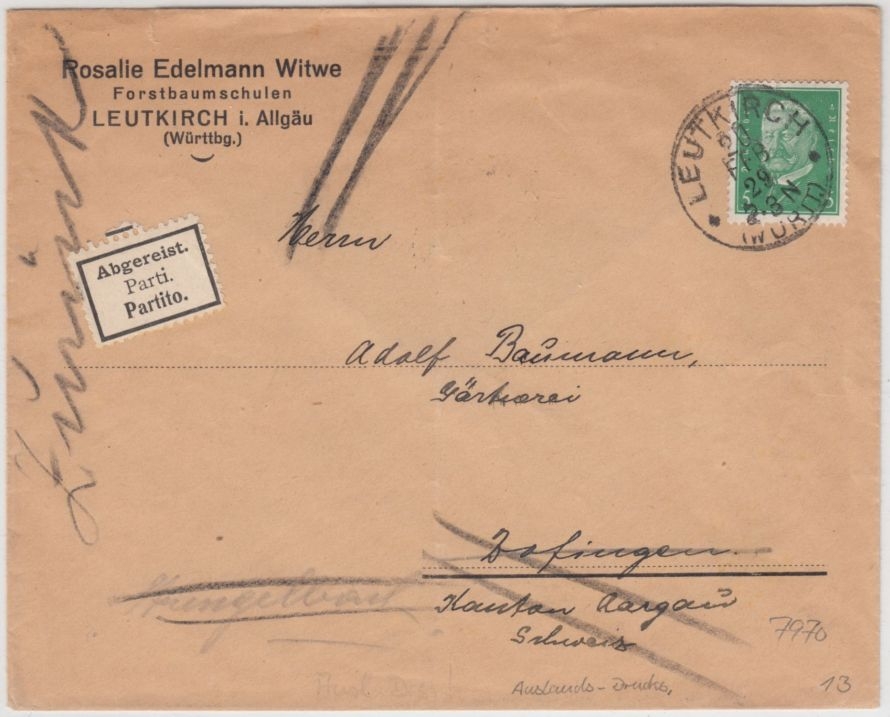 Rosalie Edelmann Witwe
Forstbaumschulen
LEUTKIRCH i. Allgäu
(Württbg.)
LEUTKIRCH
20
FEB
29
2-3N
(WÜRTT)
Zurück
Abgereist.
Parti.
Partito.
Herrn
Adolf Baumann,
Gärtnerei
Zofingen.
Kanton Aargau
Schweiz
7970
Auslands-Drucks.
13